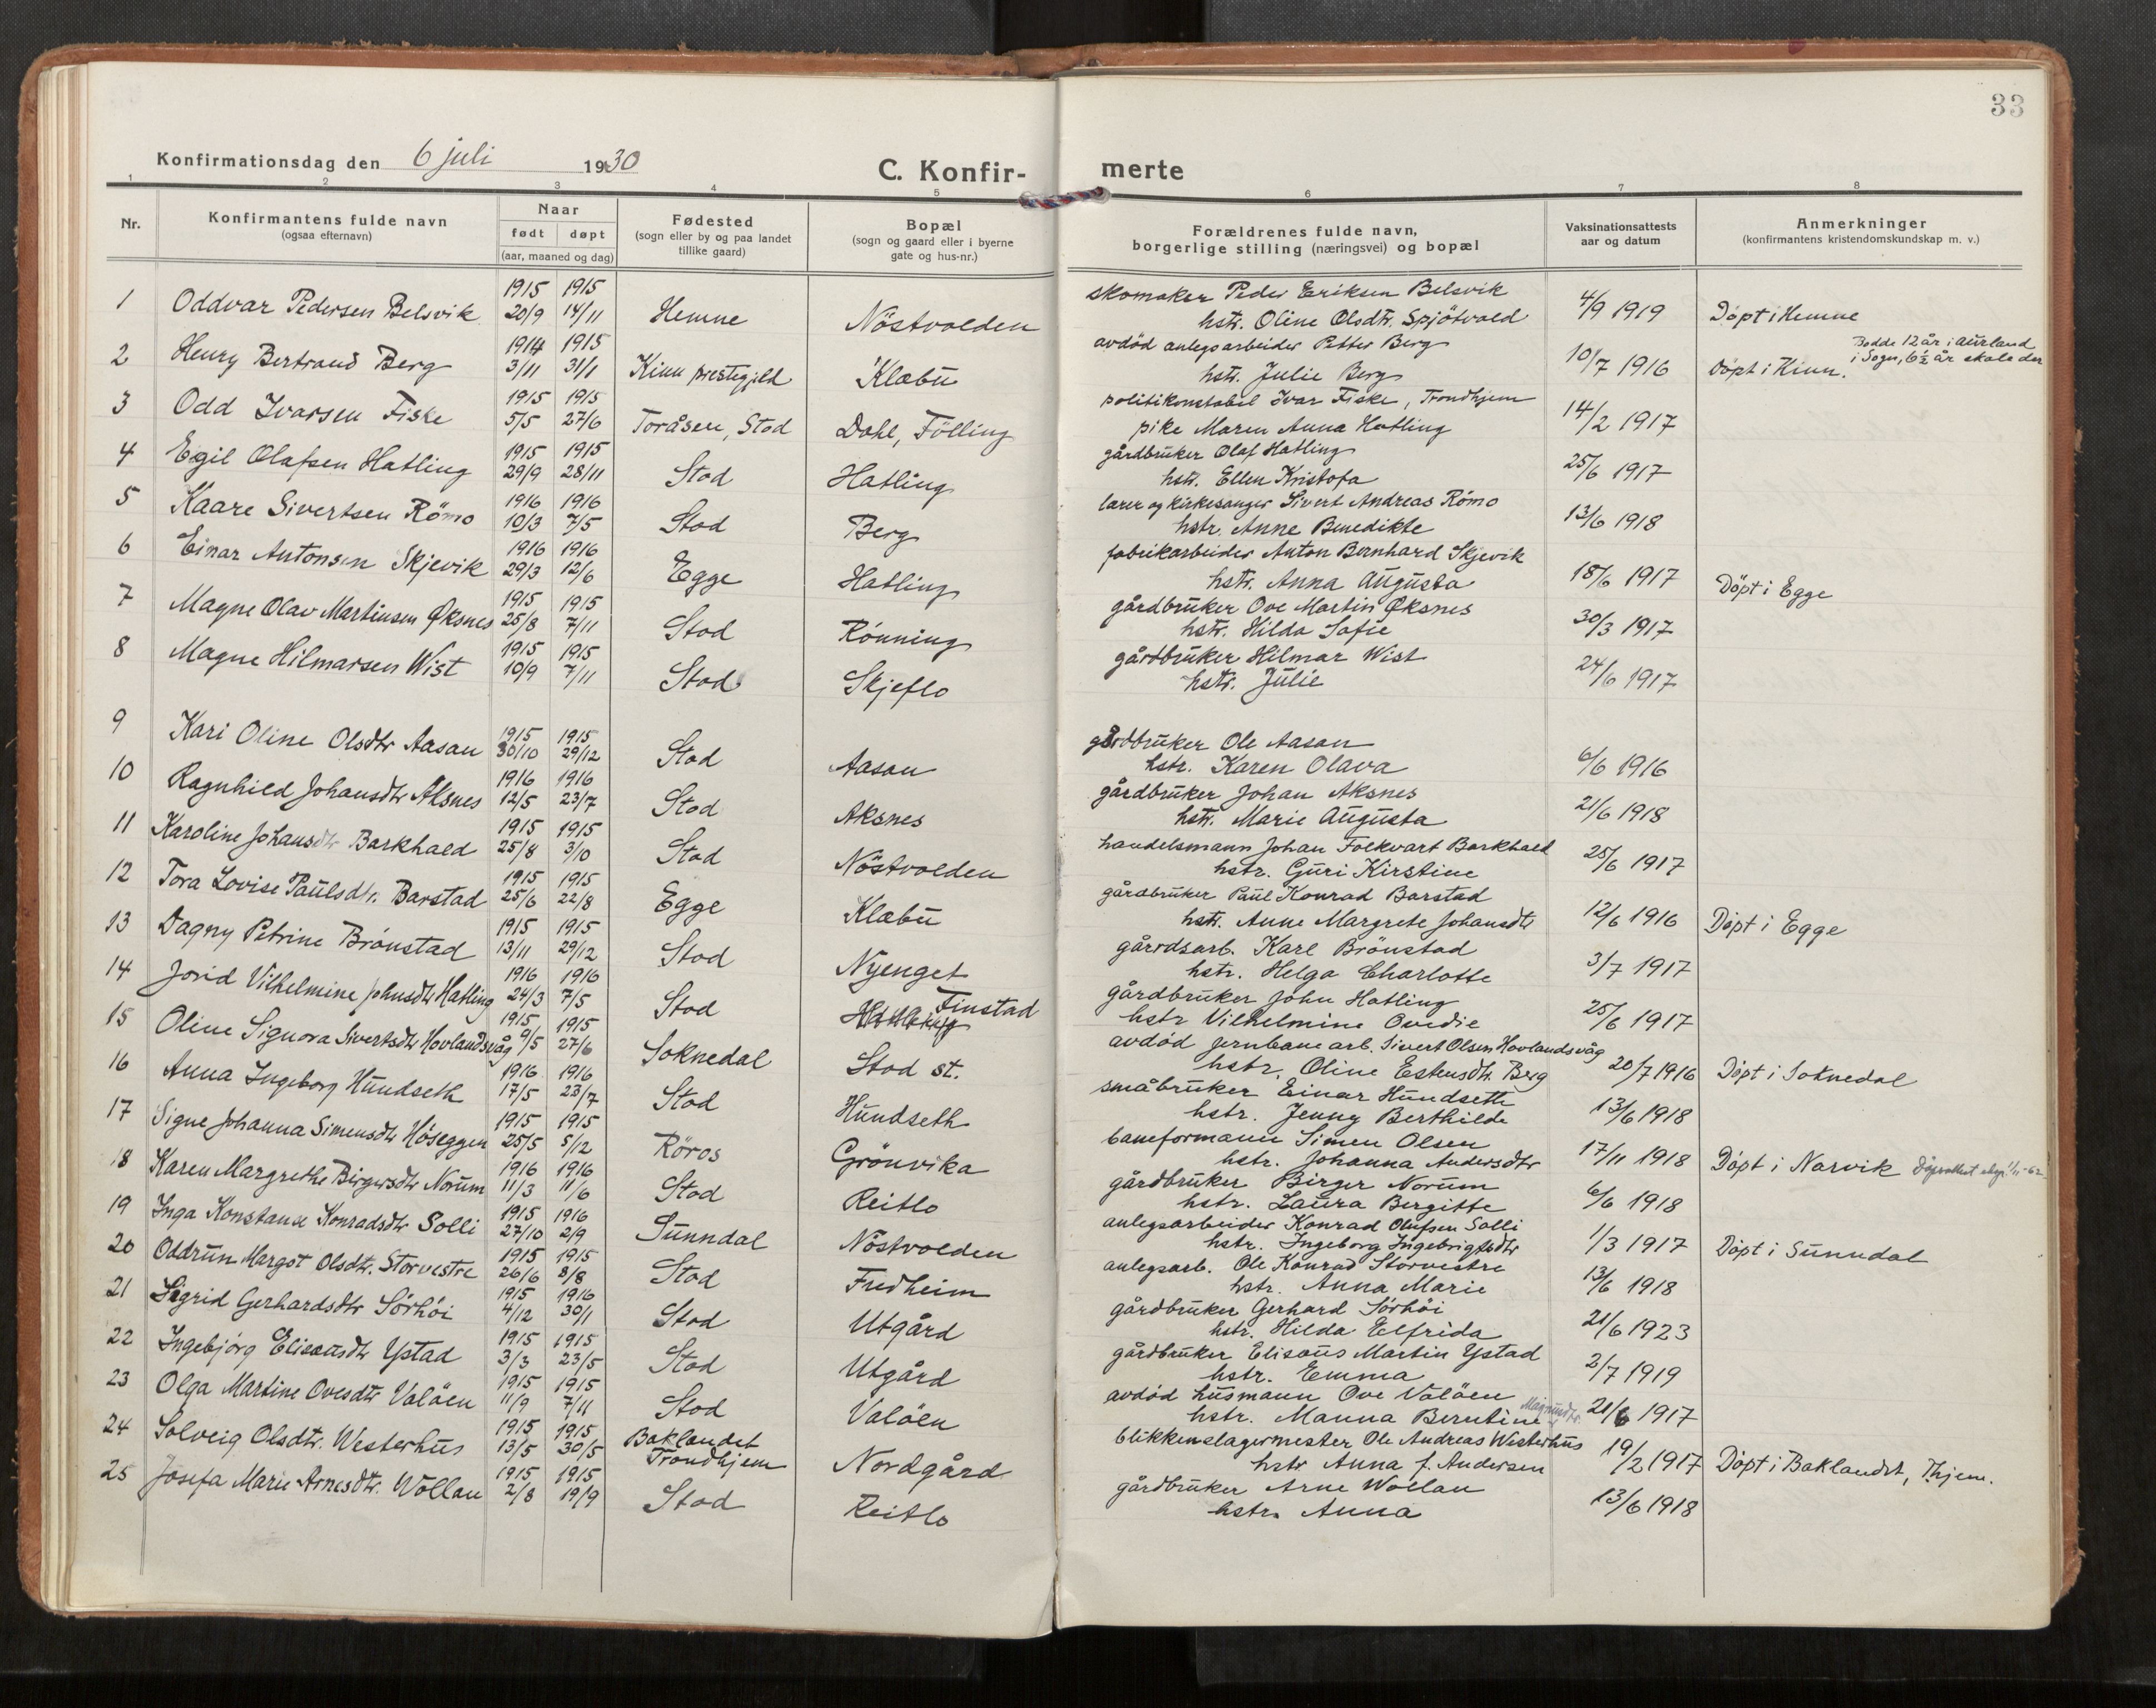 33
Konfirmationsdag den 6 juli 1930
C. Konfir-
merte
1 2 3 4 5 6 7 8
Nr.
Konfirmantens fulde navn
(ogsaa efternavn)
Naar
født døpt
(aar, maaned og dag)
Fødested
(sogn eller by og paa landet
tillike gaard)
Bopæl
(sogn og gaard eller i byerne
gate og hus-nr.)
Forældrenes fulde navn,
borgerlige stilling (næringsvei) og bopæl
Vaksinationsattests
aar og datum
Anmerkninger
(konfirmantens kristendomskundskap m. v.)
1915 1915 skomaker Peder Eriksen Belsvik
1 Oddvar Pedersen Belsvik 20/9 14/11 Hemne Nöstvolden hstr. Oline Olsdtr. Spjötvold 4/9 1919 Döpt i Hemne
1914 1915 avdöd anlegsarbeider Petter Berg Bodde 12 år i Aurland
2 Henry Bertrand Berg 3/11 31/1 Kinn prestegjeld Klæbu hstr. Julie Berg 10/7 1916 Döpt i Kinn. i Sogn, 6½ år skole der
1915 1915 politikonstabel Ivar Fiske, Trondhjem
3 Odd Ivarsen Fiske 5/5 27/6 Toråsen, Stod Dahl, Fölling pike Maren Anna Hatling 14/2 1917
1915 1915 gårdbruker Olaf Hatling
4 Egil Olafsen Hatling 29/9 28/11 Stod Hatling hstr. Ellen Kristofa 25/6 1917
1916 1916 lærer og kirkesanger Sivert Andreas Römo
5 Kaare Sivertsen Römo 10/3 7/5 Stod Berg hstr. Anne Benedikte 13/6 1918
1916 1916 fabrikarbeider Anton Bernhard Skjevik
6 Einar Antonsen Skjevik 29/3 12/6 Egge Hatling hstr. Anna Augusta 18/6 1917 Döpt i Egge
1915 1915 gårdbruker Ove Martin Øksnes
7 Magne Olav Martinsen Øksnes 25/8 7/11 Stod Rönning hstr. Hilda Sofie 30/3 1917
1915 1915 gårdbruker Hilmar Wist
8 Magne Hilmarsen Wist 10/9 7/11 Stod Skjeflo hstr. Julie 24/6 1917
1915 1915 gårdbruker Ole Aasan
9 Kari Oline Olsdtr Aasan 30/10 29/12 Stod Aasan hstr. Karen Olava 6/6 1916
1916 1916 gårdbruker Johan Aksnes
10 Ragnhild Johansdtr Aksnes 12/5 23/7 Stod Aksnes hstr. Marie Augusta 21/6 1918
1915 1915 handelsmann Johan Folkvart Barkhald
11 Karoline Johansdtr Barkhald 25/8 3/10 Stod Nöstvolden hstr. Guri Kirstine 25/6 1917
1915 1915 gårdbruker Paul Konrad Barstad
12 Tora Lovise Paulsdtr. Barstad 25/6 22/8 Egge Klæbu hstr. Anne Margrete Johansdtr 12/6 1916 Döpt i Egge
1915 1915 gårrdsarb. Karl Brönstad
13 Dagny Petrine Brönstad 13/11 29/12 Stod Nyenget hstr. Helga Charlotte 3/7 1917
1916 1916 gårdbruker John Hatling
14 Jorid Vilhelmine Johnsdtr Hatling 24/3 7/5 Stod Hatling Finstad hstr Vilhelmine Ovedie 25/6 1917
1915 1915 avdöd jernbanearb. Sivert Olsen Hovlandsvåg
15 Oline Signora Sivertsdtr Hovlandsvåg 9/5 27/6 Soknedal Stod st. hstr. Oline Estensdtr. Berg 20/7 1916 Döpt i Soknedal
1916 1916 småbruker Einar Hundseth
16 Anna Ingeborg Hundseth 17/5 23/7 Stod Hundseth hstr. Jenny Berthilde 13/6 1918
1915 1915 baneformann Simen Olsen
17 Signe Johanna Simensdtr Höseggen 25/5 5/12 Röros Grönvika hstr. Johanna Andersdtr 17/11 1918 Döpt i Narvik
1916 1916 gårdbruker Birger Norum
18 Karen Margrethe Birgersdtr Norum 11/3 11/6 Stod Reitlo hstr. Laura Bergitte 6/6 1918
1915 1916 anlegsarbeider Konrad Olufsen Solli
19 Inga Konstanse Konradsdtr Solli 27/10 2/9 Sunndal Nöstvolden hstr. Ingeborg Ingebrigtsdtr 1/3 1917 Döpt i Sunndal
1915 1915 anlegsarb. Ole Konrad Storvestre
20 Oddrun Margot Olsdtr. Storvestre 26/6 8/8 Stod Fredheim hstr. Anna Marie 13/6 1918
1915 1916 gårdbruker Gerhard Sörhöi
21 Sigrid Gerhardsdtr Sörhöi 4/12 30/1 Stod Utgård hstr. Hilda Elfrida 21/6 1923
1915 1915 gårdbruker Elisæus Martin Ystad
22 Ingebjörg Elisæusdtr Ystad 3/3 23/5 Stod Utgård hstr. Emma 2/7 1919
1915 1915 avdöd husmann Ove Valöen
23 Olga Martine Ovesdtr Valöen 11/9 7/11 Stod Valöen hstr. Manna Berntine 21/6 1917
1915 1915 Baklandet blikkenslagermester Ole Andreas Westerhus
24 Solveig Olsdtr. Westerhus 13/5 30/5 Trondhjem Nordgård hstr Anna f. Andersen 19/2 1917 Döpt i Baklandet, Thjem.
1915 1915 gårdbruker Arne Wollan
25 Josefa Marie Arnesdtr. Wollan 2/8 19/9 Stod Reitlo hstr. Anna 13/6 1918